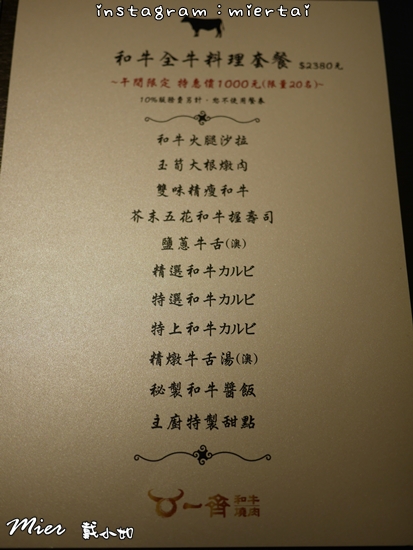 instagram：miertai
和牛全牛料理套餐 $2380元
~午間限定 特惠價1000元(限量20名)~
10%服務費另計，恕不使用餐券
和牛火腿沙拉
玉筍大根燉肉
雙味精瘦和牛
芥末五花和牛握壽司
鹽蔥牛舌(澳)
精選和牛カルビ
特選和牛カルビ
特上和牛カルビ
精燉牛舌湯(澳)
秘製和牛醬飯
主廚特製甜點
一齊 和牛
燒肉
Mier 戴小如